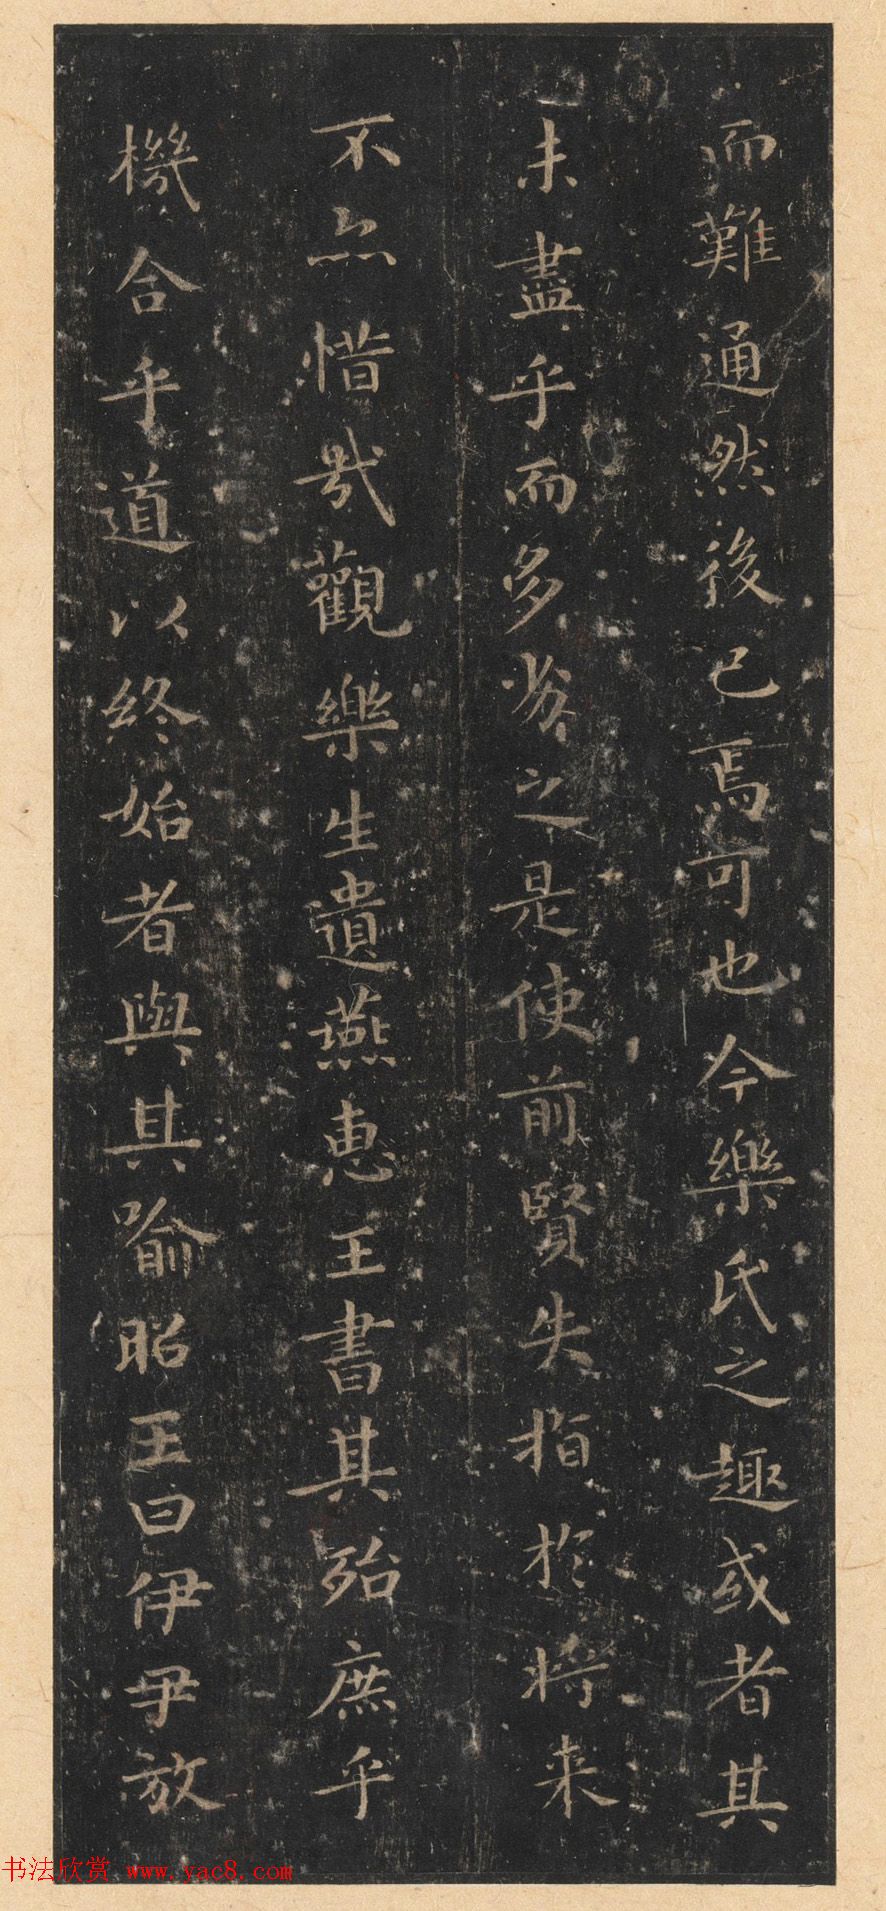 而難通然後已焉可也今樂氏之趣或者其
未盡乎而多劣之是使前賢失指於將来
不亦惜哉觀樂生遺燕惠王書其殆庶乎
機合乎道以終始者與其喻昭王曰伊尹放
书法欣赏 www.yac8.com